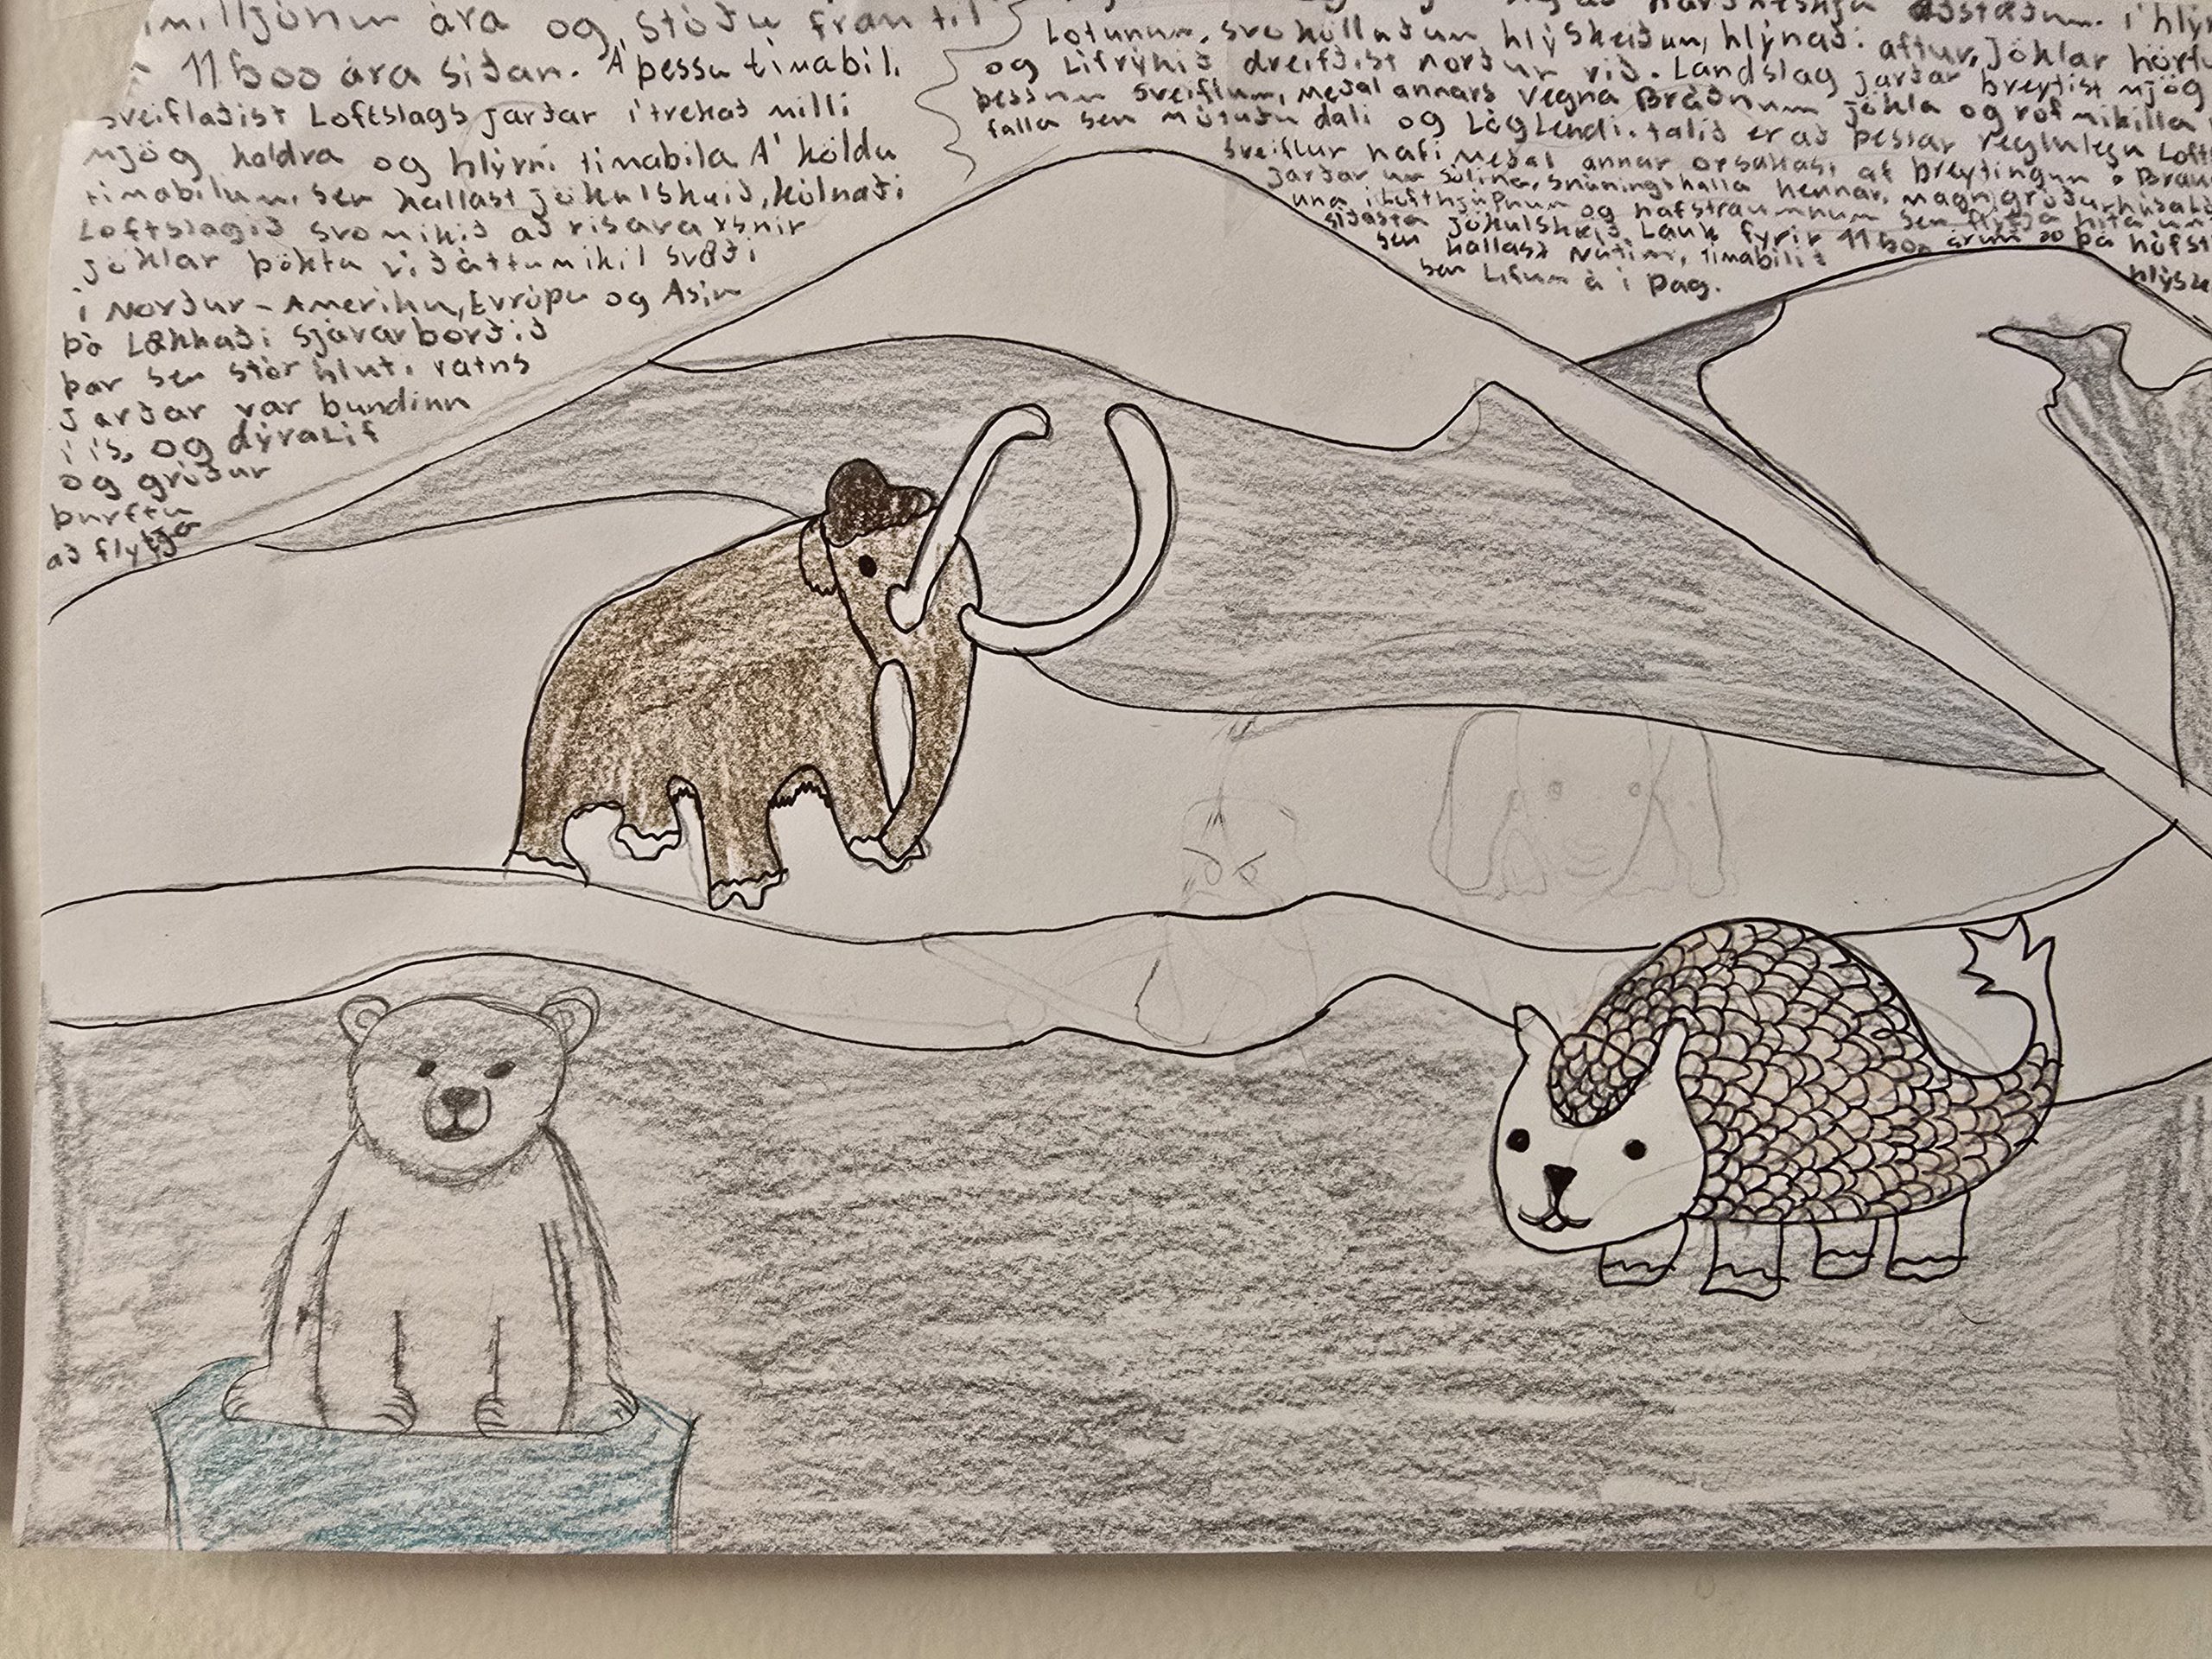 milljónum ára og stóðu fram til
11500 ára síðan. Á þessu tímabili
sveiflaðist Loftslags jarðar ítrekað milli
mjög kaldra og hlýrri tímabila. Á köldu
tímabilum, sem kallast jökulskeið, kólnaði
Loftslagið svo mikið að risavaxnir
jöklar þökktu víðáttumikil svæði
í Norður-Ameríku, Evrópu og Asíu
þá Lækkaði sjávarborðið
þar sem stór hluti vatns
Jarðar var bundinn
í ís, og dýralíf
og gróður
þurftu
að flytja
aðstæðum. í hlý
Lotunum, svokölluðum hlýskeiðum, hlýnaði aftur, Jöklar
og Lífríkið dreifðist norður við. Landslag jarðar breytist mjög
þessum sveiflum, meðal annars vegna Bráðnum jökla og rofmikilla
falla sem mótuðu dali og Láglendi. talið er að þessar reglulegu
sveiflur hafi meðal annar orsakast af breytingum á
jarðar um sólina, snúningshalla hennar, magni
una í Lofthjúpnum og hafstraumnum sem flytja hita
síðasta jökulskeið Lauk fyrir 11500 árum og þá hófst
sem kallast Nútími, tímabilið hlýsk
sem Lifum á í Dag.